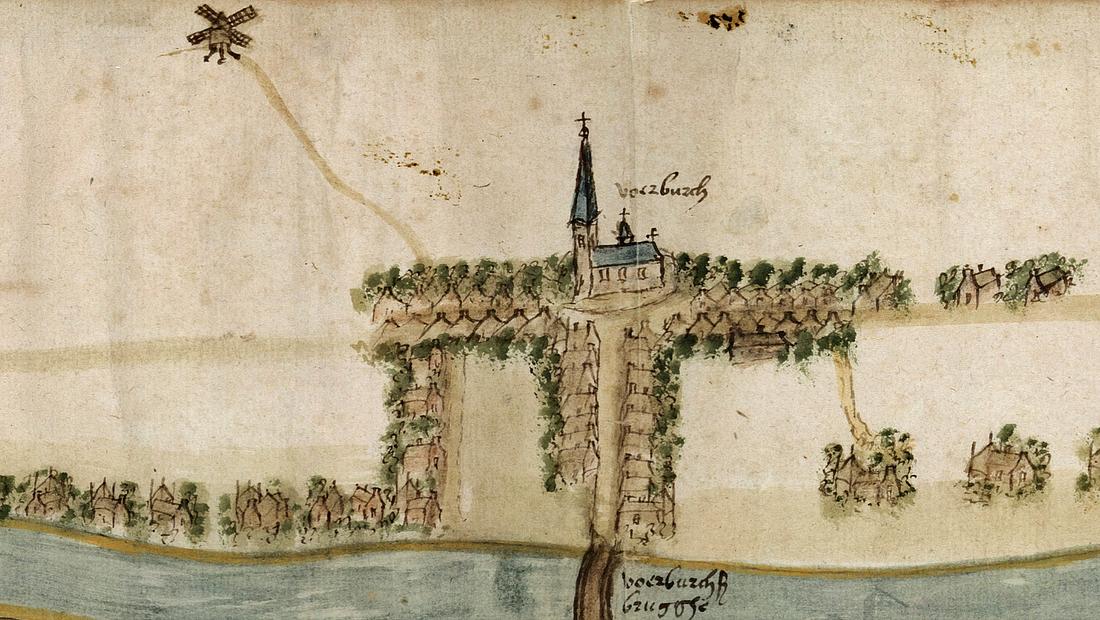 voerburch
voerburch
brugghe